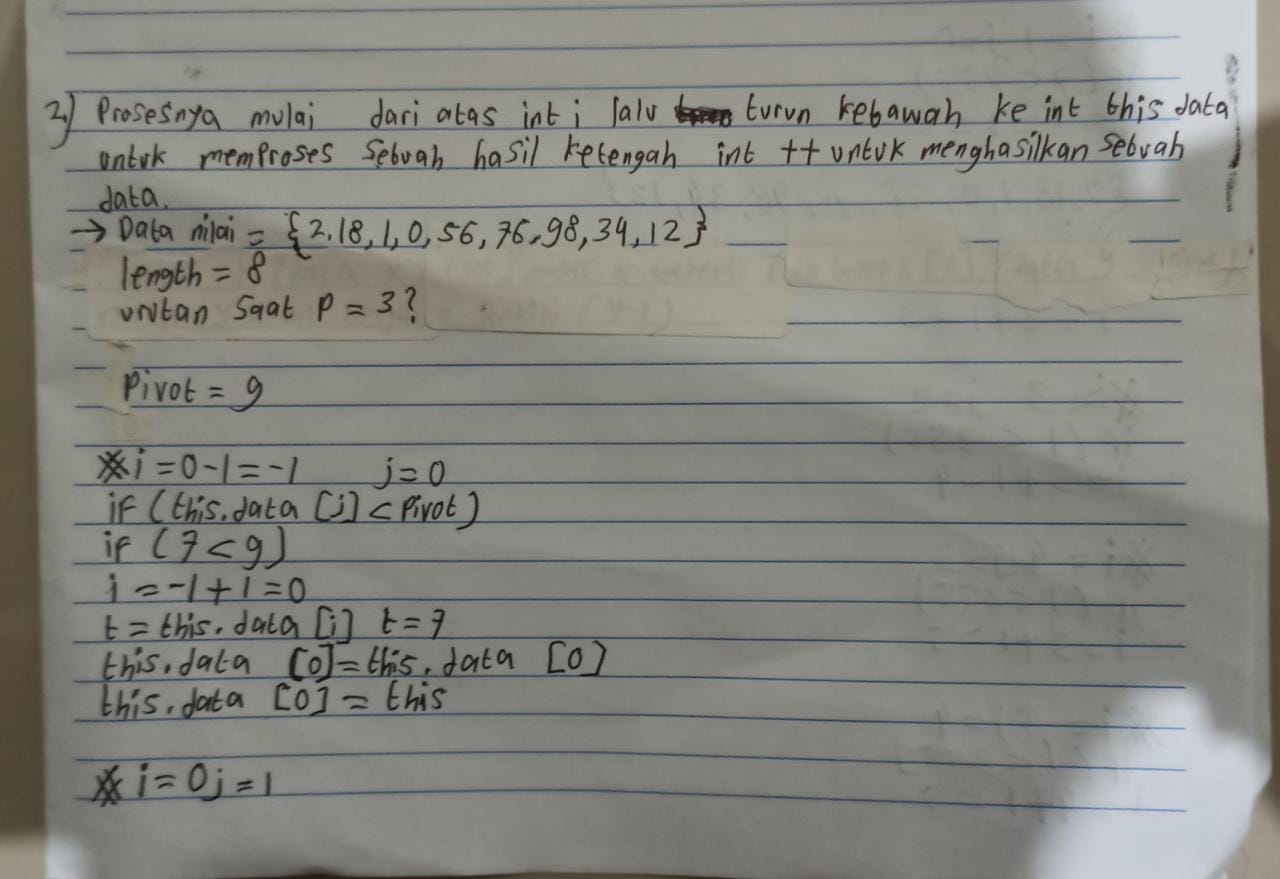 2) Prosesnya mulai dari atas int i lalu turun kebawah ke int this data
untuk memproses sebuah hasil ketengah int ++ untuk menghasilkan sebuah
data.
→ Data nilai = {2.18,1,0,56,76,98,34,12}
length = 8
urutan saat P = 3?
Pivot = 9
※ i = 0-1 = -1 j = 0
if (this.data [j] < Pivot)
if (7 < 9)
i = -1 + 1 = 0
t = this.data [i] t = 7
this.data [0] = this.data [0]
this.data [0] = this
※ i = 0 j = 1